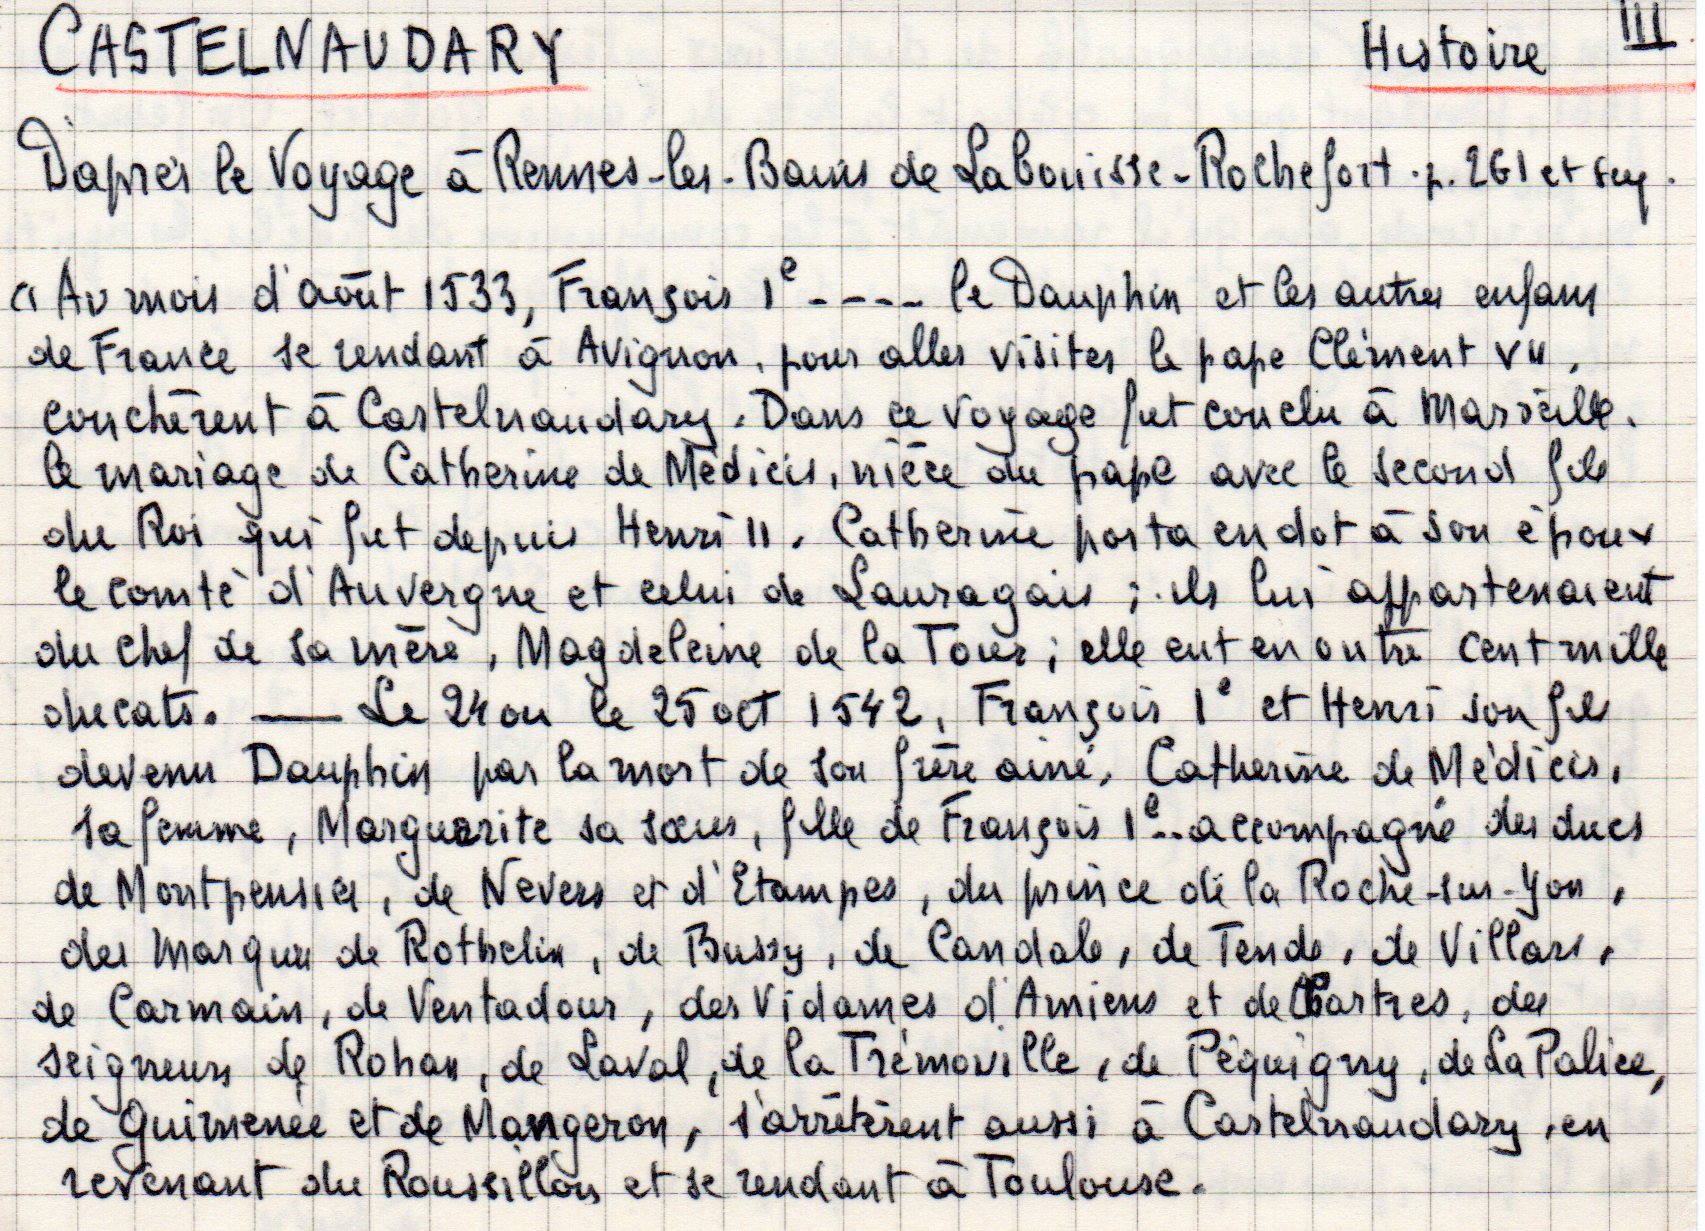 CASTELNAUDARY Histoire III
D'après le Voyage à Rennes-les-Bains de Labouisse-Rochefort . p. 261 et suy.
" Au mois d'août 1533, François 1e ---- le Dauphin et les autres enfans
de France se rendant à Avignon, pour aller visiter le pape Clément VII,
couchèrent à Castelnaudary. Dans ce voyage fut conclu à Marseille.
le mariage de Catherine de Médicis, nièce du pape avec le second fils
du Roi qui fut depuis Henri II. Catherine porta en dot à son époux
le comté d'Auvergne et celui de Lauragais ; ils lui appartenaient
du chef de sa mère, Magdeleine de la Tour ; elle eut en outre cent mille
ducats. — Le 24 ou le 25 oct 1542, François 1e et Henri son fils
devenu Dauphin par la mort de son frère ainé, Catherine de Médicis,
sa femme, Marguerite sa sœur, fille de François 1e.. accompagné des ducs
de Montpensier, de Nevers et d'Etampes, du prince de la Roche-sur-Yon,
des Marquis de Rothelin, de Bussy, de Candale, de Tende, de Villars,
de Carmain, de Ventadour, des Vidames d'Amiens et de Chartres, des
seigneurs de Rohan, de Laval, de la Trémoville, de Péquigny, de La Palice,
de Guimenée et de Mangeron, s'arrêtèrent aussi à Castelnaudary, en
revenant du Roussillon et se rendant à Toulouse.